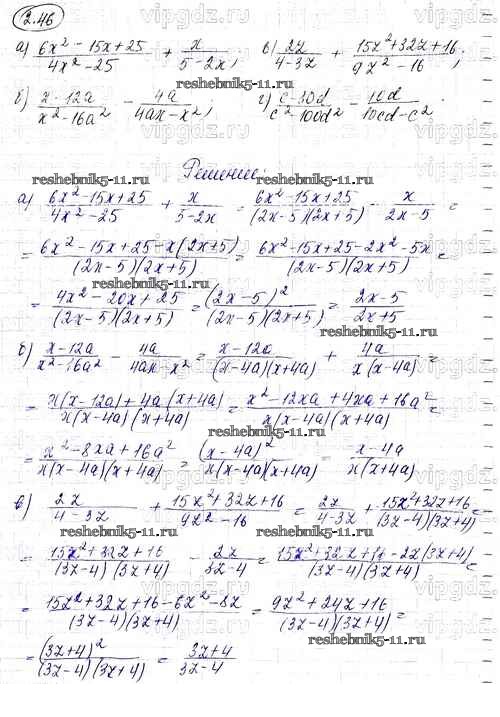 2.46
а) (6x² - 15x + 25)/(4x² - 25) + x/(5 - 2x); в) 2z/(4 - 3z) + (15z² + 32z + 16)/(9z² - 16);
б) (x - 12a)/(x² - 16a²) - 4a/(4ax - x²); г) (c - 30d)/(c² - 100d²) - 10d/(10cd - c²).
Решение:
reshebnik5-11.ru reshebnik5-11.ru
а) (6x² - 15x + 25)/(4x² - 25) + x/(5 - 2x) = (6x² - 15x + 25)/((2x - 5)(2x + 5)) - x/(2x - 5) =
= (6x² - 15x + 25 - x(2x + 5))/((2x - 5)(2x + 5)) = (6x² - 15x + 25 - 2x² - 5x)/((2x - 5)(2x + 5)) =
= (4x² - 20x + 25)/((2x - 5)(2x + 5)) = (2x - 5)²/((2x - 5)(2x + 5)) = (2x - 5)/(2x + 5)
reshebnik5-11.ru
б) (x - 12a)/(x² - 16a²) - 4a/(4ax - x²) = (x - 12a)/((x - 4a)(x + 4a)) + 4a/(x(x - 4a)) =
= (x(x - 12a) + 4a(x + 4a))/(x(x - 4a)(x + 4a)) = (x² - 12xa + 4xa + 16a²)/(x(x - 4a)(x + 4a)) =
reshebnik5-11.ru
= (x² - 8xa + 16a²)/(x(x - 4a)(x + 4a)) = (x - 4a)²/(x(x - 4a)(x + 4a)) = (x - 4a)/(x(x + 4a))
в) 2z/(4 - 3z) + (15z² + 32z + 16)/(9z² - 16) = 2z/(4 - 3z) + (15z² + 32z + 16)/((3z - 4)(3z + 4)) =
reshebnik5-11.ru
= (15z² + 32z + 16)/((3z - 4)(3z + 4)) - 2z/(3z - 4) = (15z² + 32z + 16 - 2z(3z + 4))/((3z - 4)(3z + 4)) =
= (15z² + 32z + 16 - 6z² - 8z)/((3z - 4)(3z + 4)) = (9z² + 24z + 16)/((3z - 4)(3z + 4)) =
reshebnik5-11.ru
= (3z + 4)²/((3z - 4)(3z + 4)) = (3z + 4)/(3z - 4)